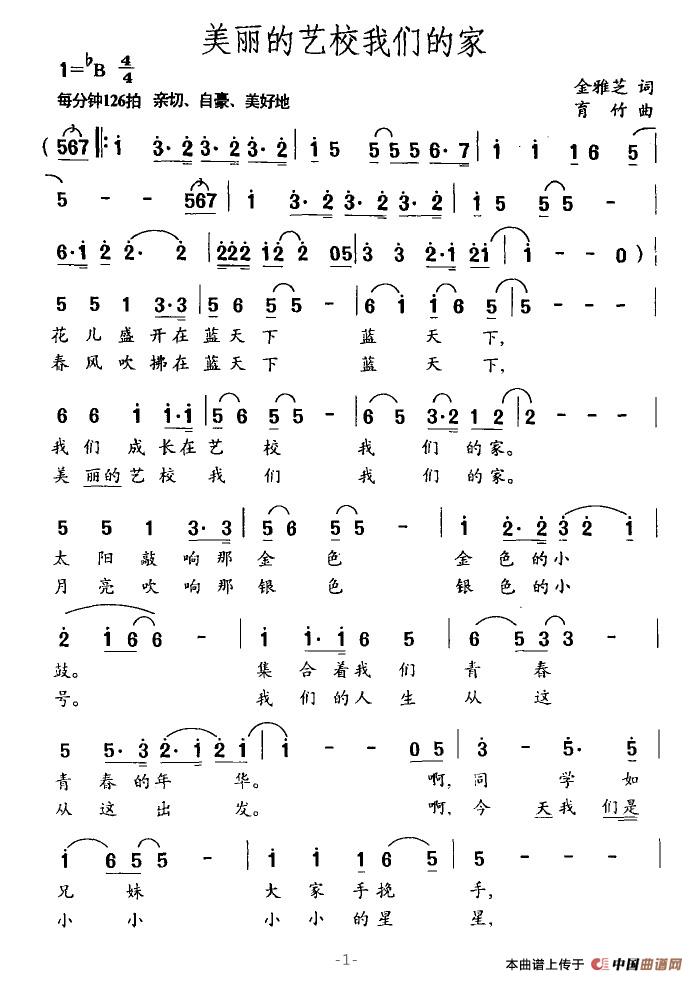 美丽的艺校我们的家
1=♭B 4/4
金雅芝 词
每分钟126拍 亲切、自豪、美好地
育 竹 曲
( 567 |: i 3· 2 3· 2 3· 2 | i 5 5 5 5 6· 7 | i i i 6 5 |
5 - - 567 | i 3· 2 3· 2 3· 2 | i 5 5 5 - |
6· i 2 2· 2 | 2 2 2 i 2 2 0 5 | 3 3 2· i 2 i | i - - 0 ) |
5 5 1 3· 3 | 5 6 5 5 - | 6 i i 6 5 | 5 - - - |
花 儿 盛 开 在 蓝 天 下 蓝 天 下,
春 风 吹 拂 在 蓝 天 下 蓝 天 下,
6 6 i i· i | 5 6 5 5 - | 6 6 3· 2 1 2 | 2 - - - |
我 们 成 长 在 艺 校 我 们 的 家。
美 丽 的 艺 校 我 们 我 们 的 家。
5 5 1 3· 3 | 5 6 5 5 - | i 2· 2 3 2 i |
太 阳 敲 响 那 金 色 金 色 的 小
月 亮 吹 响 那 银 色 银 色 的 小
2 i 6 6 - | i i· i 5 5 | 6 5 3 3 - |
鼓。 集 合 着 我 们 青 春
号。 我 们 的 人 生 从 这
5 5· 3 2· i 2 i | i - - 0 5 | 3 - 5· 5 |
青 春 的 年 华。 啊, 同 学 如
从 这 出 发。 啊, 今 天 我 们 是
i 6 5 5 - | i i i 6 5 | 5 - - - |
兄 妹 大 家 手 挽 手,
小 小 小 小 的 星 星,
-1-
本曲谱上传于 中国曲谱网